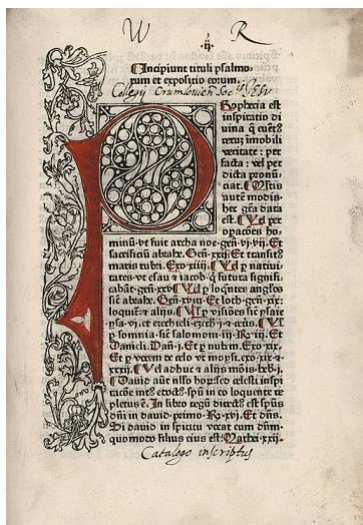 W R
·ij·
Incipiunt tituli psalmo-
rum et expositio eorum.
Collegij Crumlovien Soc Iesu
Prophetia est
inspiratio di
uina q̄ euētꝰ
rerum īmobili
veritate: per
facta: vel per
dicta pronū-
ciat. Istis
autē modis
hec gr̄a data
est. Vel per
opacōes ho
minū. vt fuit archa noe. gen̄. vj. vij. Et
sacrificiū abrahe. Gen̄. xxij. Et transitꝰ
maris rubri. Exo. xiiij. Vel p natiui-
tates. vt esau et iacob q̄ futura signifi-
cabāt. gen̄. xxv. Vel p loq̄ntes angelos
sic̄ abrahe. Gen̄. xviij. Et loth. gen̄. xix:
loquunt̄ et alijs. Vel p visiões sic̄ ysaie
ysa. vj. et ezechieli. ezech. j. et ceteris. Vel
p somnia. sic̄ salomoni. iij. R. iij. Et
Danieli. Dan̄. j. Et p nubem. Exo. xix.
Et p vocem de celo vt moysi. exo. xix. et
xxxij. Vel adhuc et alijs modis.
Dauid aūt nō homīe sed celesti inspi
ratiōe et sp̄m in eo loquente re
pletus. In libro regū directꝰ est spūs
dn̄i in dauid. primo. R. xvj. Et dn̄s.
Si dauid in spiritu vocat eum dn̄m
quomodo filius eius est. Mathei. xxij.
Catalogo inscriptus